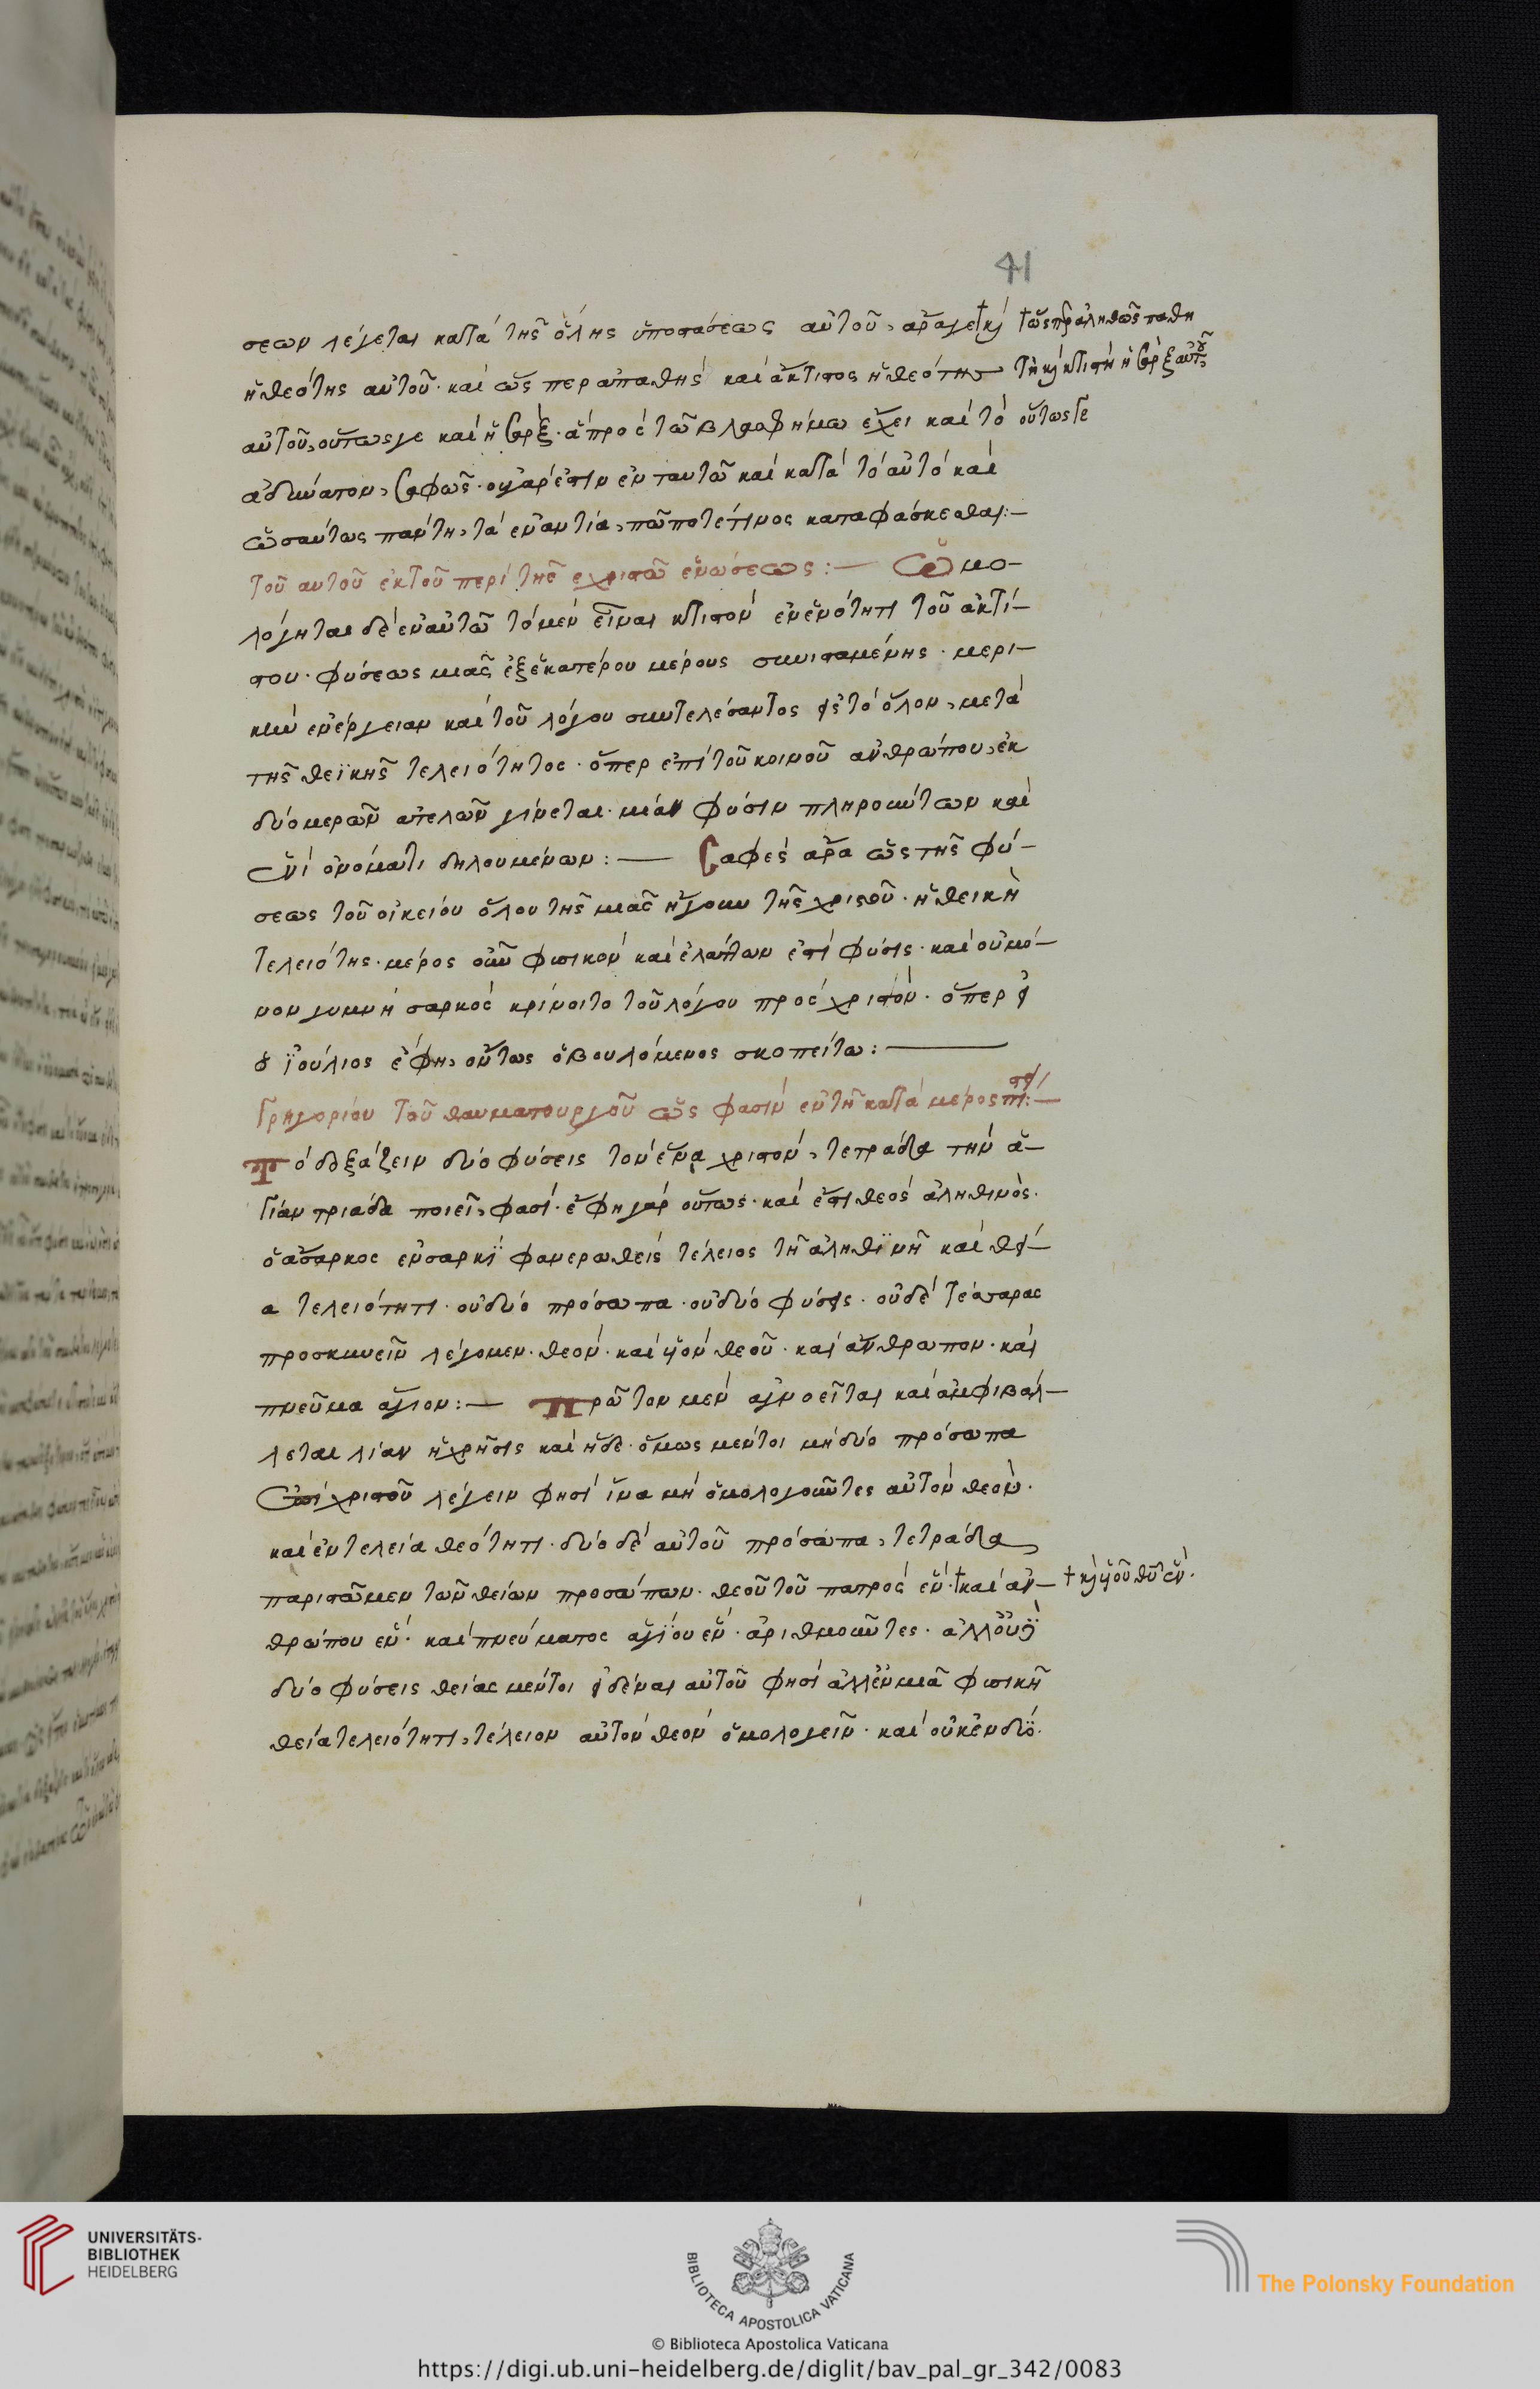 41
σεων λέγεται κατὰ τῆς ὅλης ὑποστάσεως αὐτοῦ, ἆράγε † κ(αὶ)
ἡ θεότης αὐτοῦ· καὶ ὥς περ ἀπαθὴς καὶ ἄκτιστος ἡ θεότης
αὐτοῦ, οὕτως γε καὶ ἡ σὰρξ· ἃ πρὸς τῶ βλασφήμω ἔχει καὶ τὸ
ἀδύνατον, σαφῶς· οὐ γάρ ἐστιν ἐν ταυτῶ καὶ κατὰ τὸ αὐτὸ καὶ
ὡσαύτως πάντη, τὰ ἐναντία, πῶποτέ τινος καταφάσκεσθαι:—
† ὥς πρ ἀληθῶς παθη
τὴ κ(αὶ) κτιστὴ ἡ σὰρξ αὐτοῦ,
οὕτως γε
τοῦ αυτοῦ ἐκ τοῦ περὶ τῆς ἐν χριστῶ ἑνώσεως:— Ὡμο-
λόγηται δὲ ἐν αὐτῶ τὸ μὲν εἶναι κτιστὸν ἐν ἑνότητι τοῦ ἀκτί-
στου· φύσεως μιᾶς ἐξ ἑκατέρου μέρους συνισταμένης· μερι-
κὴν ἐνέργειαν καὶ τοῦ λόγου συντελέσαντος εἰς τὸ ὅλον, μετὰ
τῆς θεϊκῆς τελειότητος· ὅπερ ἐπὶ τοῦ κοινοῦ ἀνθρώπου, ἐκ
δύο μερῶν ἀτελῶν γίνεται· μίαν φύσιν πληρούντων καὶ
ἑνὶ ὀνόματι δηλουμένων:— Σαφὲς ἆρα ὡς τῆς φύ-
σεως τοῦ οἰκείου ὅλου τῆς μιᾶς ἤγουν τῆς χριστοῦ· ἡ θεικὴ
τελειότης· μέρος οὖν φυσικὸν καὶ ἐλάττων ἐστὶ φύσις· καὶ οὐ μό-
νον γυμνὴ σαρκὸς κρίνοιτο τοῦ λόγου πρὸς χριστὸν· ὅπερ εἰ
ὁ ἰούλιος ἔφη, οὕτως ὁ βουλόμενος σκοπείτω:—
Γρηγορίου τοῦ θαυματουργοῦ ὥς φασιν ἐν τῆ κατὰ μέρος πίστει:—
Τὸ δοξάζειν δύο φύσεις τὸν ἕνα χριστὸν, τετράδα τὴν ἁ-
γίαν τριάδα ποιεῖ, φασὶ· ἔφη γὰρ οὕτως· καὶ ἔστι θεὸς ἀληθινὸς·
ὁ ἄσαρκος ἐν σαρκὶ φανερωθεὶς τέλειος τῆ ἀληθινῆ καὶ θεί-
α τελειότητι· οὐ δύο πρόσωπα· οὐ δύο φύσεις· οὐδὲ τέσσαρας
προσκυνεῖν λέγομεν· θεὸν· καὶ υἱὸν θεοῦ· καὶ ἄνθρωπον· καὶ
πνεῦμα ἅγιον:— Πρῶτον μὲν ἀγνοεῖται καὶ ἀμφιβάλ-
λεται λίαν ἡ χρῆσις καὶ ἥδε· ὅμως μέντοι μὴ δύο πρόσωπα
ἐπὶ χριστοῦ λέγειν φησὶ ἵνα μὴ ὁμολογοῦντες αὐτὸν θεὸν·
καὶ ἐν τελεία θεότητι· δύο δὲ αὐτοῦ πρόσωπα, τετράδα
παριστῶμεν τῶν θείων προσώπων· θεοῦ τοῦ πατρὸς ἓν· † καὶ ἀν-
† κ(αὶ) υἱοῦ θ(εο)ῦ ἓν·
θρώπου ἓν· καὶ πνεύματος ἁγίου ἓν· ἀριθμοῦντες· ἀλλ οὐχὶ
δύο φύσεις θείας μέντοι εἰδέναι αὐτοῦ φησὶ ἀλλ ἐν μιᾶ φυσικῆ
θεία τελειότητι, τέλειον αὐτὸν θεὸν ὁμολογεῖν· καὶ οὐκ ἐν δυσὶ·
UNIVERSITÄTS-
BIBLIOTHEK
HEIDELBERG
BIBLIOTECA APOSTOLICA VATICANA
© Biblioteca Apostolica Vaticana
The Polonsky Foundation
https://digi.ub.uni-heidelberg.de/diglit/bav_pal_gr_342/0083